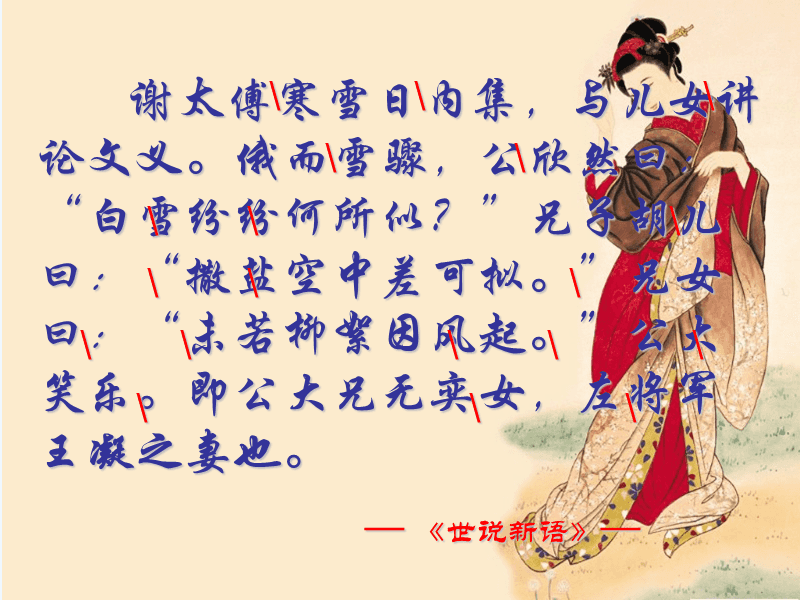 谢太傅\寒雪日\内集，与儿女\讲
论文义。俄而\雪骤，公\欣然\曰：
“白\雪纷\纷何所似？”兄子胡\儿
曰：\“撒\盐空中差可拟。”\兄女
曰\：“\未若柳絮因\风起。\”公大\
笑乐。\即公大兄无奕\女，左\将军
王凝之妻也。
— 《世说新语》—